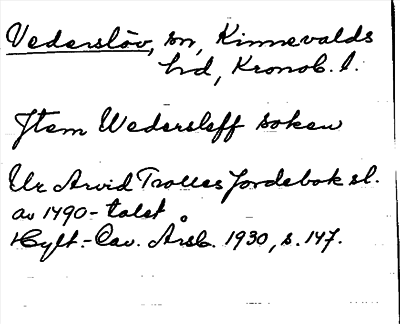 Vederslöv, sn, Kinnevalds
hd, Kronob. l.
Jtem Wedersleff soken
Ur Arvid Trolles Jordebok sl.
av 1490-talet
Hylt.-Cav. Årsb. 1930, s. 147.